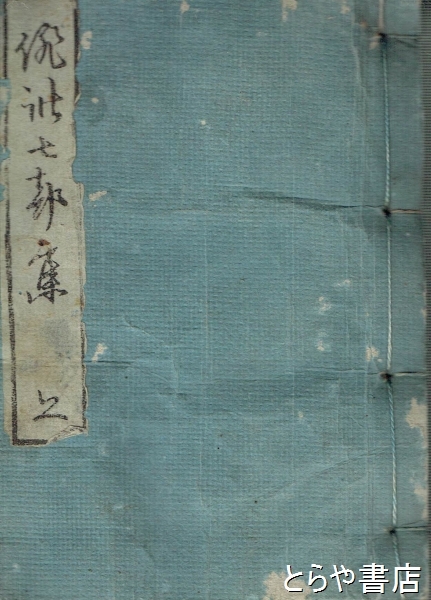 俳諧七部集 上
とらや書店